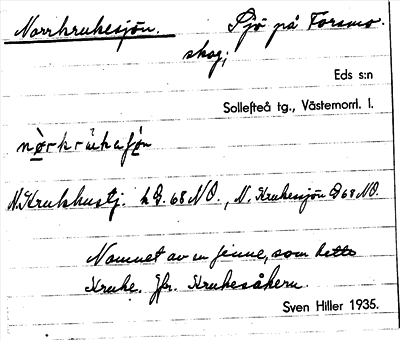 Norrkrukesjön. Sjö på Forsmo
skog;
Eds s:n
Sollefteå tg., Västernorrl. l.
N. Krukhustj. h G. 68 NO., N. Krukesjön G 68 NO.
Namnet av en finne, som hette
Kruke. Jfr. Krukesåkern.
Sven Hiller 1935.